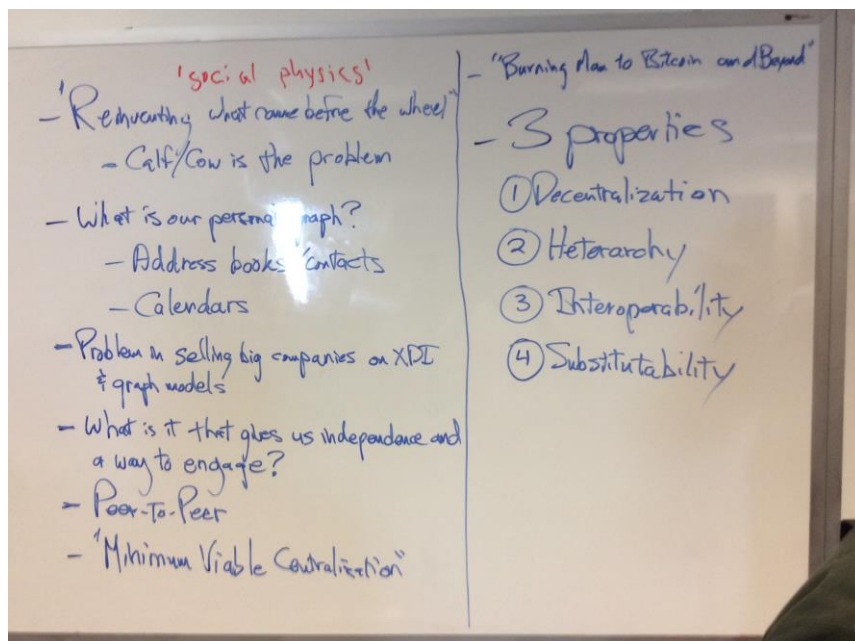 'social physics'
- "Reinventing what came before the wheel"
- Calf/Cow is the problem
- What is our personal graph?
- Address books/contacts
- Calendars
- Problem in selling big companies on XDI
& graph models
- What is it that gives us independence and
a way to engage?
- Peer-To-Peer
- "Minimum Viable Centralization"
- "Burning Man to Bitcoin and Beyond"
- 3 properties
① Decentralization
② Heterarchy
③ Interoperability
④ Substitutability